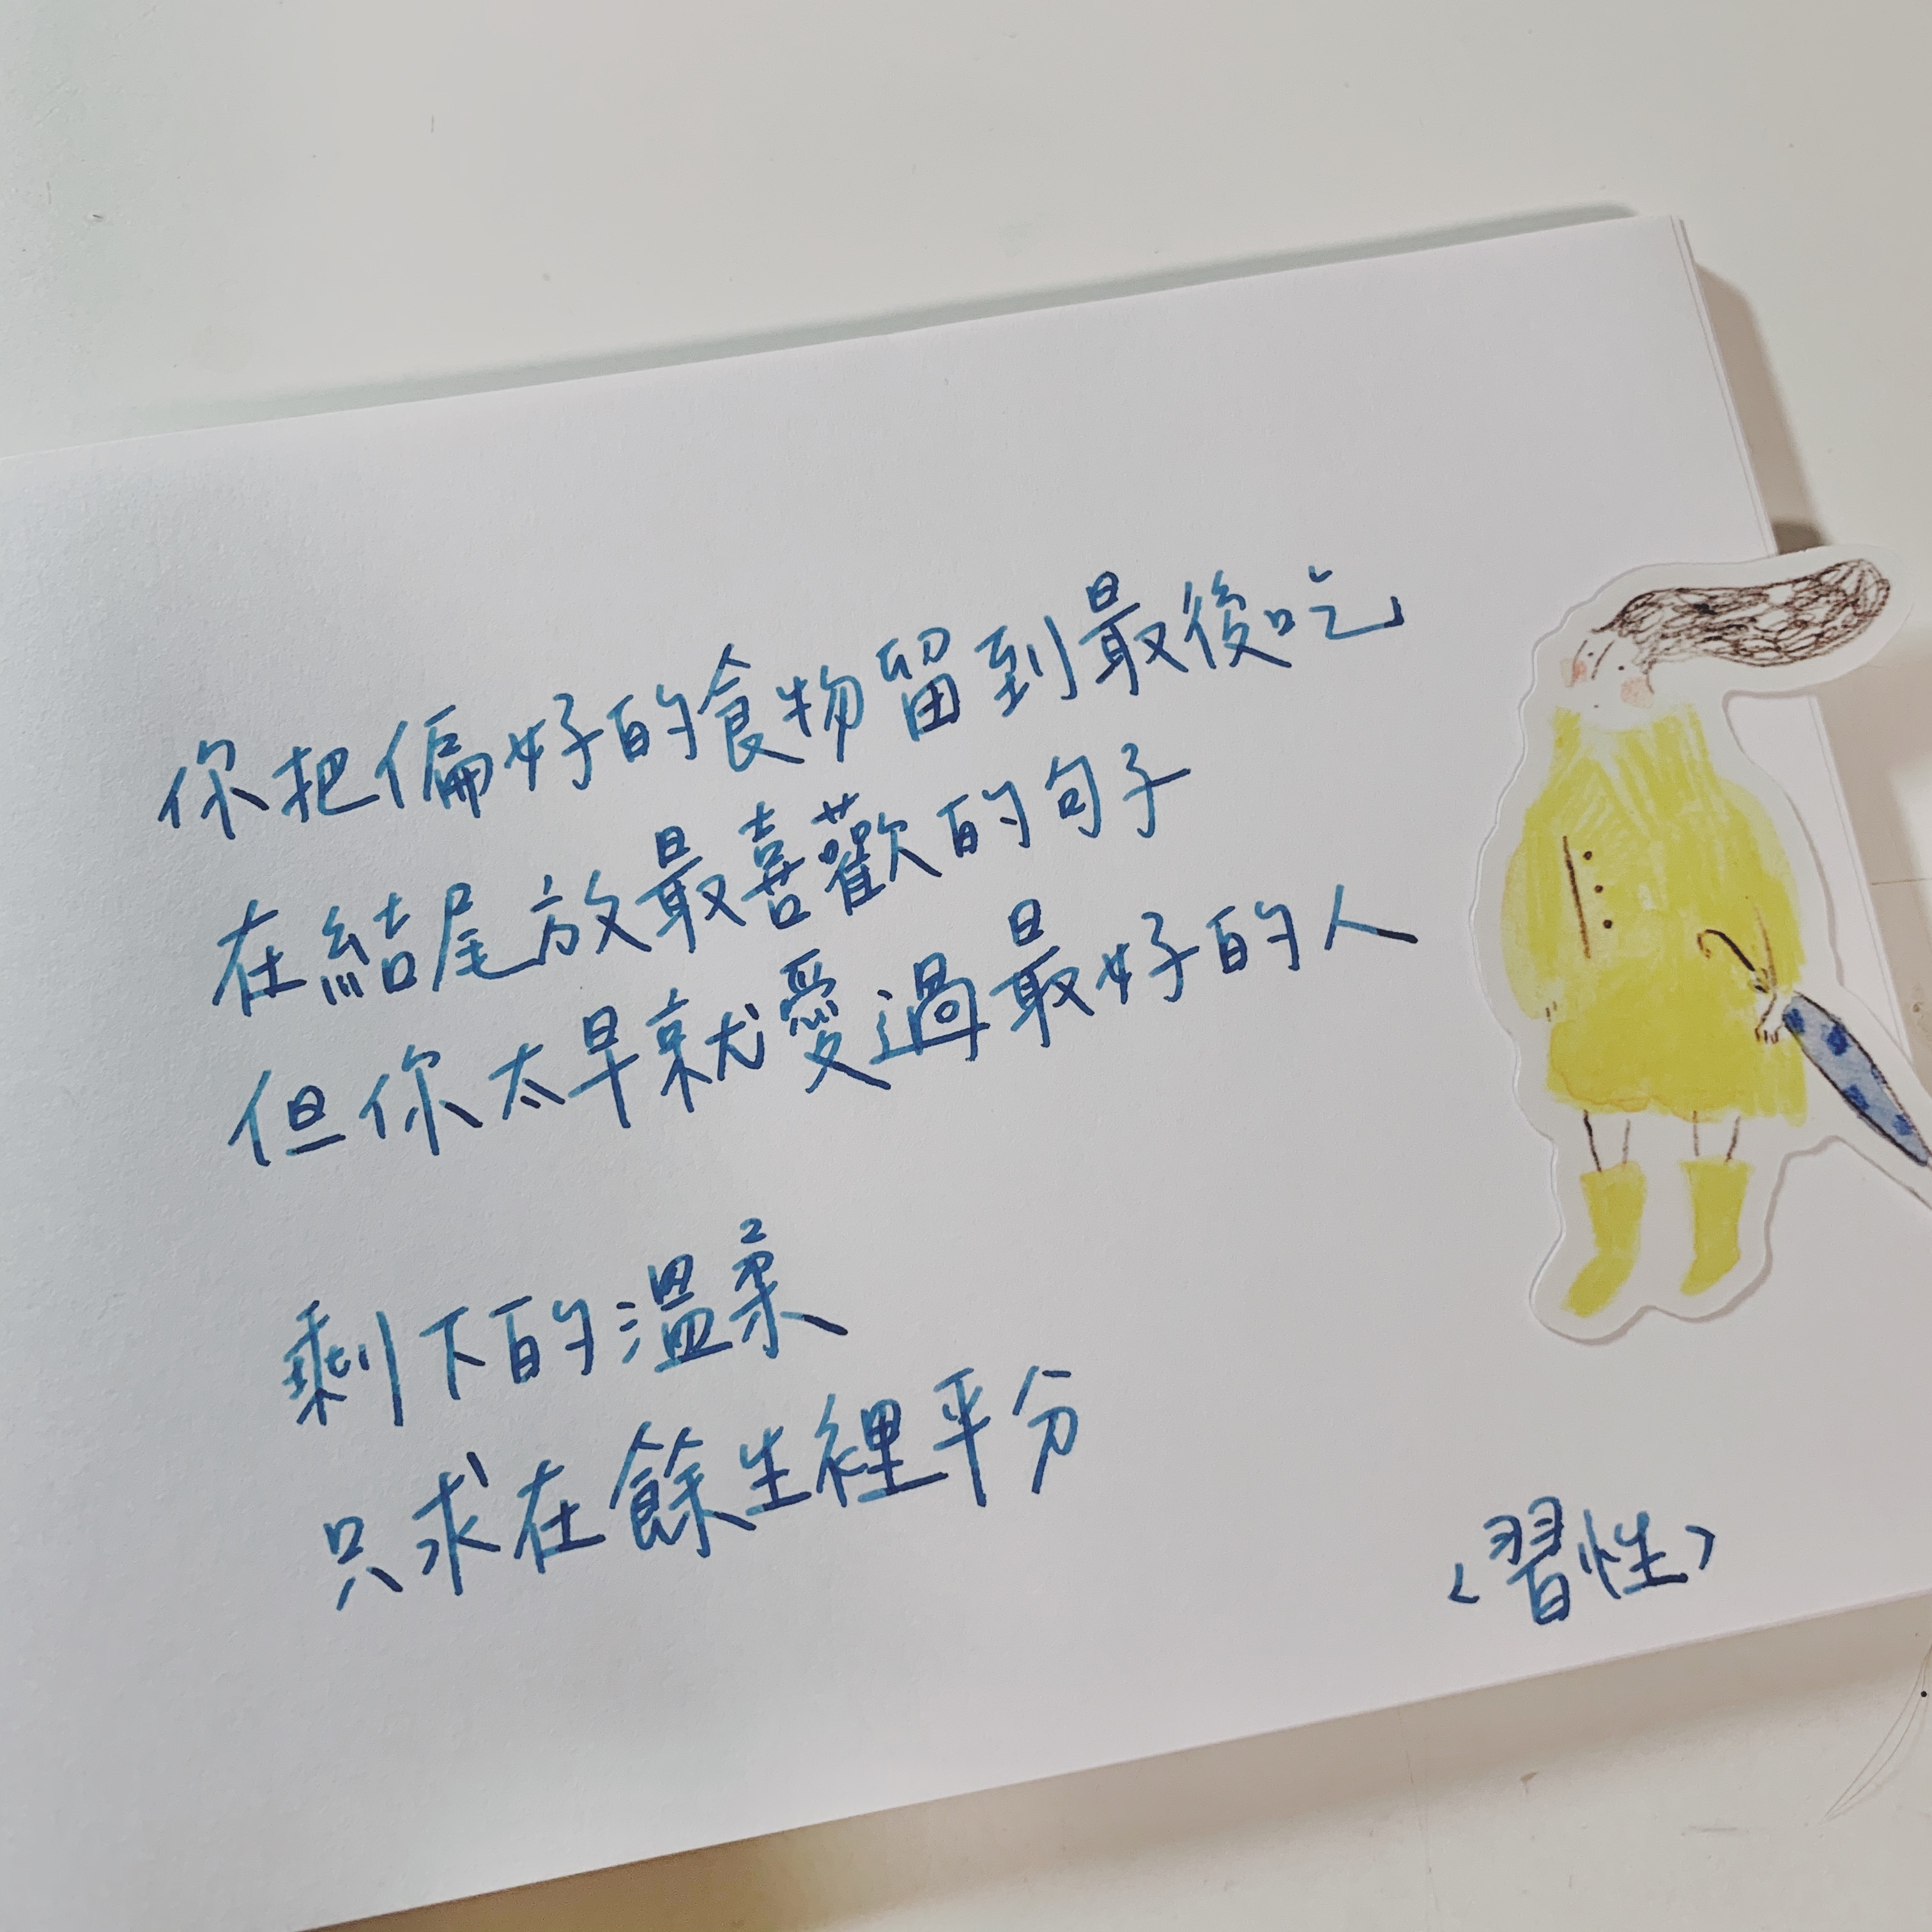 你把偏好的食物留到最後吃
在結尾放最喜歡的句子
但你太早就愛過最好的人
剩下的溫柔
只求在餘生裡平分
〈習性〉